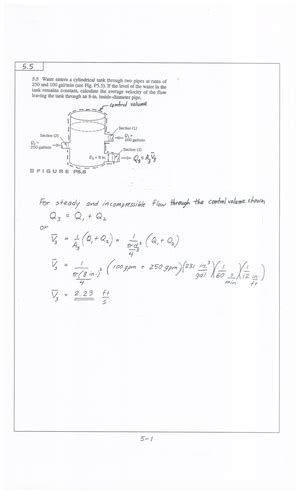 5.5
5.5 Water enters a cylindrical tank through two pipes at rates of
250 and 100 gal/min (see Fig. P5.5). If the level of the water in
the tank remains constant, calculate the average velocity of the flow
leaving the tank through an 8-in. inside-diameter pipe.
control volume
Section (1)
Q₁ =
100 gal/min
Section (2)
Q₂ =
250 gal/min
Section (3)
D₃ = 8 in.
Q₃ = A₃V̄₃
FIGURE P5.5
For steady and incompressible flow through the control volume shown,
Q₃ = Q₁ + Q₂
or
V̄₃ = 1/A₃ (Q₁ + Q₂) = 1/(πD₃²/4) (Q₁ + Q₂)
V̄₃ = 1/(π(8 in.)²/4) (100 gpm + 250 gpm) (231 in.³/gal) (1/60 s/min) (1/12 in/ft)
V̄₃ = 2.23 ft/s
5-1